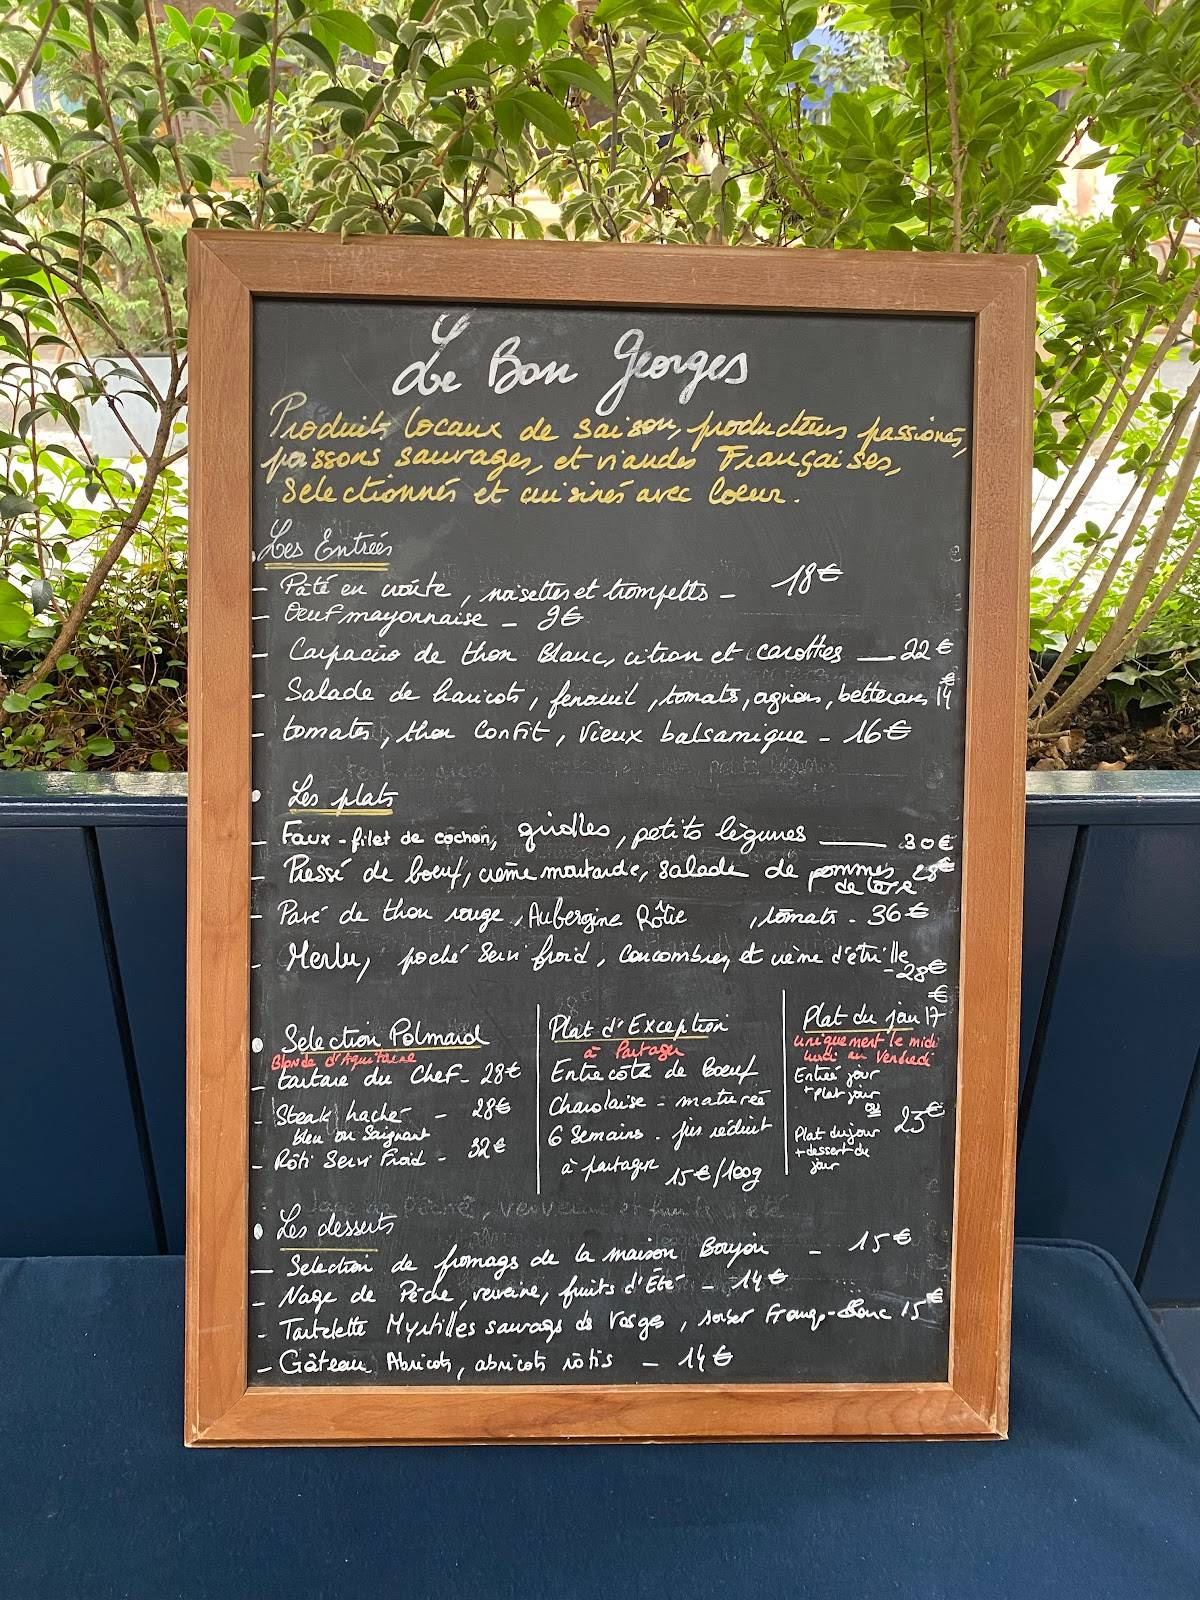 Le Bon Georges
Produits locaux de saison, producteurs passionés,
poissons sauvages, et viandes Françaises,
Selectionnés et cuisinés avec Coeur.
Les Entrées
- Pâté en croûte, noisettes et trompettes - 18€
- Oeuf mayonnaise - 9€
- Carpaccio de thon Blanc, citron et carottes — 22€
- Salade de haricots, fenouil, tomates, oignons, betteraves 14€
- tomates, thon Confit, Vieux balsamique - 16€
• Les plats
- Faux-filet de cochon, girolles, petits légumes — 30€
- Pressé de boeuf, crème moutarde, salade de pommes 28€
de terre
- Pavé de thon rouge, Aubergine Rôtie , tomates - 36€
- Merlu, poché Servi froid, Concombres, et crème d'étrille
- 28€
• Selection Polmard
Blonde d'Aquitaine
- tartare du Chef - 28€
- Steak haché - 28€
bleu ou Saignant
- Rôti Servi Froid - 32€
Plat d'Exception
à Partager
Entrecôte de Boeuf
Charolaise - maturée
6 Semaines - jus réduit
à partager 15€/100g
€
Plat du jour 17
uniquement le midi
lundi au Vendredi
Entrée jour
+ plat jour
ou 23€
Plat du jour
+ dessert du
jour
• Les desserts
- Selection de fromages de la maison Bourjon - 15€
- Nage de Pêche, verveine, fruits d'Été - 14€
- Tartelette Myrtilles sauvages des Vosges, sorbet Fromage-Blanc 15€
- Gâteau Abricots, abricots rôtis - 14€